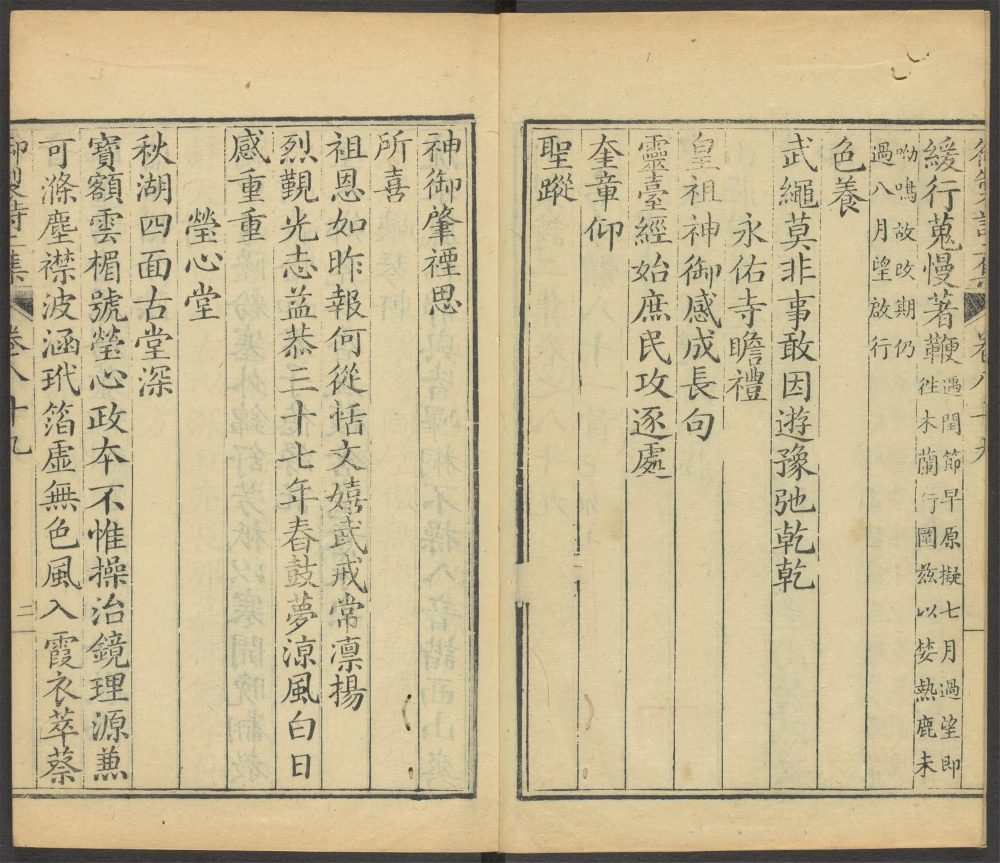 緩行蒐慢著鞭過閏節早原擬七月過望即
往木蘭行圍茲以婪熱鹿未
呦鳴故改期仍
過八月望啟行
色養
武繩莫非事敢因遊豫弛乾乾
永佑寺瞻禮
皇祖神御感成長句
靈臺經始庶民攻逐處
奎章仰
聖蹤
神御肇禋思
所喜
祖恩如昨報何從恬文嬉武戒常凛揚
烈覲光志益恭三十七年舂鼓夢涼風白日
感重重
瑩心堂
秋湖四面古堂深
寶額雲楣號瑩心政本不惟操治鏡理源兼
可滌塵襟波涵玳箔虛無色風入霞衣萃蔡
御製詩二集 卷八十九 二